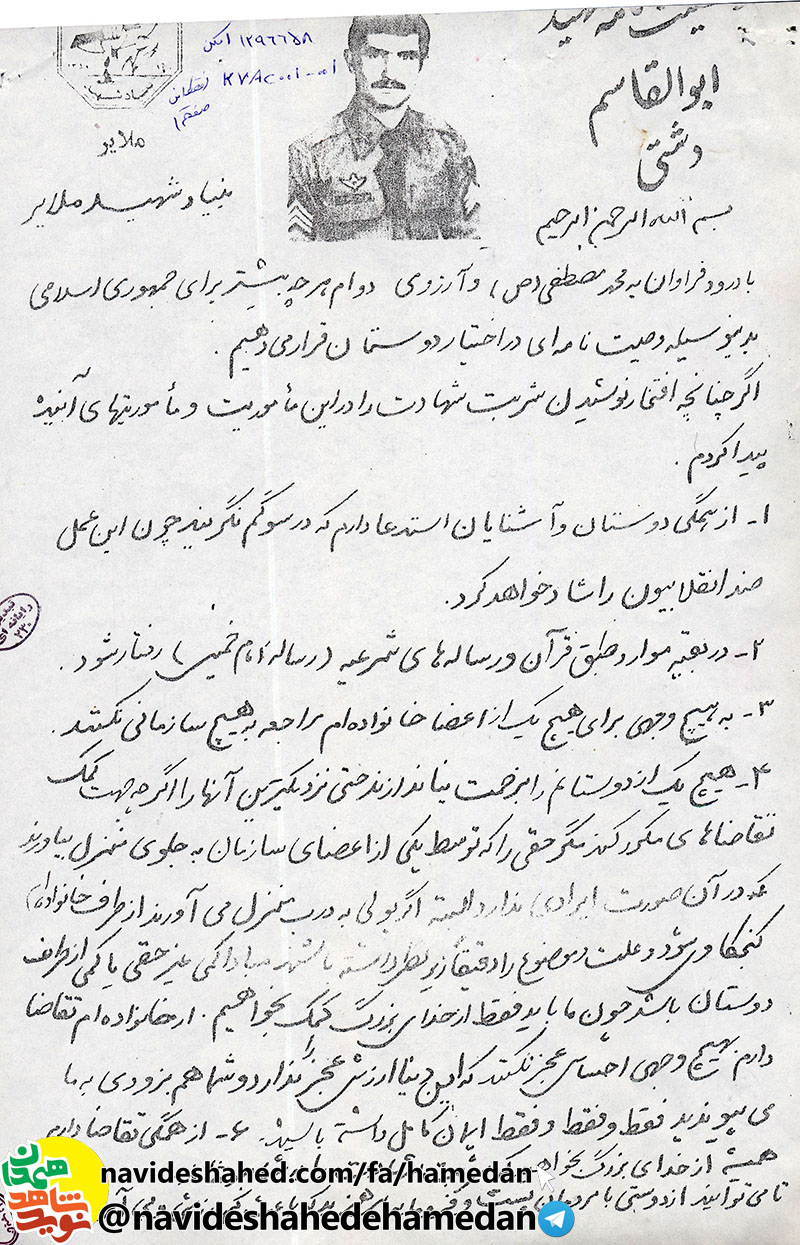 وصیت نامه شهید
ابوالقاسم
دشتی
۱۲۹۶۶۵۸
صفحه ۱
ملایر
بنیاد شهید ملایر
بسم الله الرحمن الرحیم
با درود فراوان به محمد مصطفی (ص) و آرزوی دوام هرچه بیشتر برای جمهوری اسلامی
بدینوسیله وصیت نامه ای در اختیار دوستان قرار می دهیم.
اگر چنانچه افتخار نوشیدن شربت شهادت را در این مأموریت و مأموریتهای آینده
پیدا کردم.
۱- از همگی دوستان و آشنایان استدعا دارم که در سوگم نگریند چون این عمل
ضد انقلابیون را شاد خواهد کرد.
۲- در بقیه موارد طبق قرآن و رساله های شرعیه (رساله امام خمینی) رفتار شود.
۳- به هیچ وجهی برای هیچ یک از اعضا خانواده ام مراجعه به هیچ سازمانی نکنند.
۴- هیچ یک از دوستانم را بزحمت نیاندازند حتی نزدیکترین آنها را اگر چه جهت کمک
تقاضاهای مکرر کنند مگر حقی را که توسط یکی از اعضای سازمان به جلوی منزل بیاورند
که در آن صورت ایرادی ندارد البته اگر پولی به درب منزل می آورند از طرف خانواده ام
کنجکاوی شود و علت و موضوع را دقیقاً زیر نظر داشته باشند مبادا کمی غیر حقی یا کمی از طرف
دوستان باشد چون ما باید فقط از خدای بزرگ کمک بخواهیم. از خانواده ام تقاضا
دارم بهیچ وجهی احساس عجز نکنند که این دنیا ارزش عجز را ندارد و شما هم بزودی به ما
می پیوندید فقط و فقط و فقط ایمان کامل داشته باشید. ۶- از همگی تقاضا دارم
همیشه از خدای بزرگ بخواهید
تا می توانید از دوستی با مردمان پست و
نوید شاهد همدان
navideshahed.com/fa/hamedan
@navideshahedehamedan